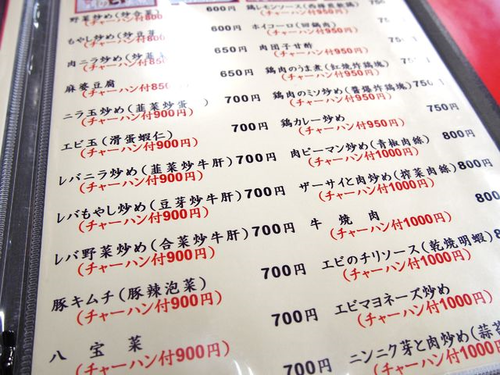 野菜炒め(炒合菜) 600円
(チャーハン付800
もやし炒め(炒豆芽
(チャーハン付80
肉ニラ炒め(炒韮
(チャーハン付85
650円
麻婆豆腐
(チャーハン付850
650円
ニラ玉炒め(韮菜炒蛋 ) 700円
(チャーハン付900円)
エビ玉(滑蛋蝦仁) 700円
(チャーハン付900円)
レバニラ炒め(韮菜炒牛肝) 700円
(チャーハン付900円)
レバもやし炒め(豆芽炒牛肝) 700円
(チャーハン付900円)
レバ野菜炒め(合菜炒牛肝) 700円
(チャーハン付900円)
豚キムチ(豚辣泡菜) 700円
(チャーハン付900円)
八 宝 菜 700円
(チャーハン付900円)
700円
鶏レモンソース
(チャーハン付950円)
ホイコーロ(回鍋肉)
(チャーハン付950円)
肉団子甘酢
(チャーハン付950円)
鶏肉のうま煮(紅焼炸鶏塊) 75
(チャーハン付950円)
鶏肉のミソ炒め(醤爆炸鶏塊) 750
(チャーハン付950円)
鶏カレー炒め 750円
(チャーハン付950円)
肉ピーマン炒め(青椒肉絲) 800円
(チャーハン付1000円)
ザーサイと肉炒め(搾菜肉絲) 800円
(チャーハン付1000円)
牛 焼 肉 800
(チャーハン付1000円)
エビのチリソース(乾焼明蝦) 80
(チャーハン付1000円)
エビマヨネーズ炒め
(チャーハン付1000円)
ニンニク芽と肉炒め(蒜苔
(チャーハン付1000円)